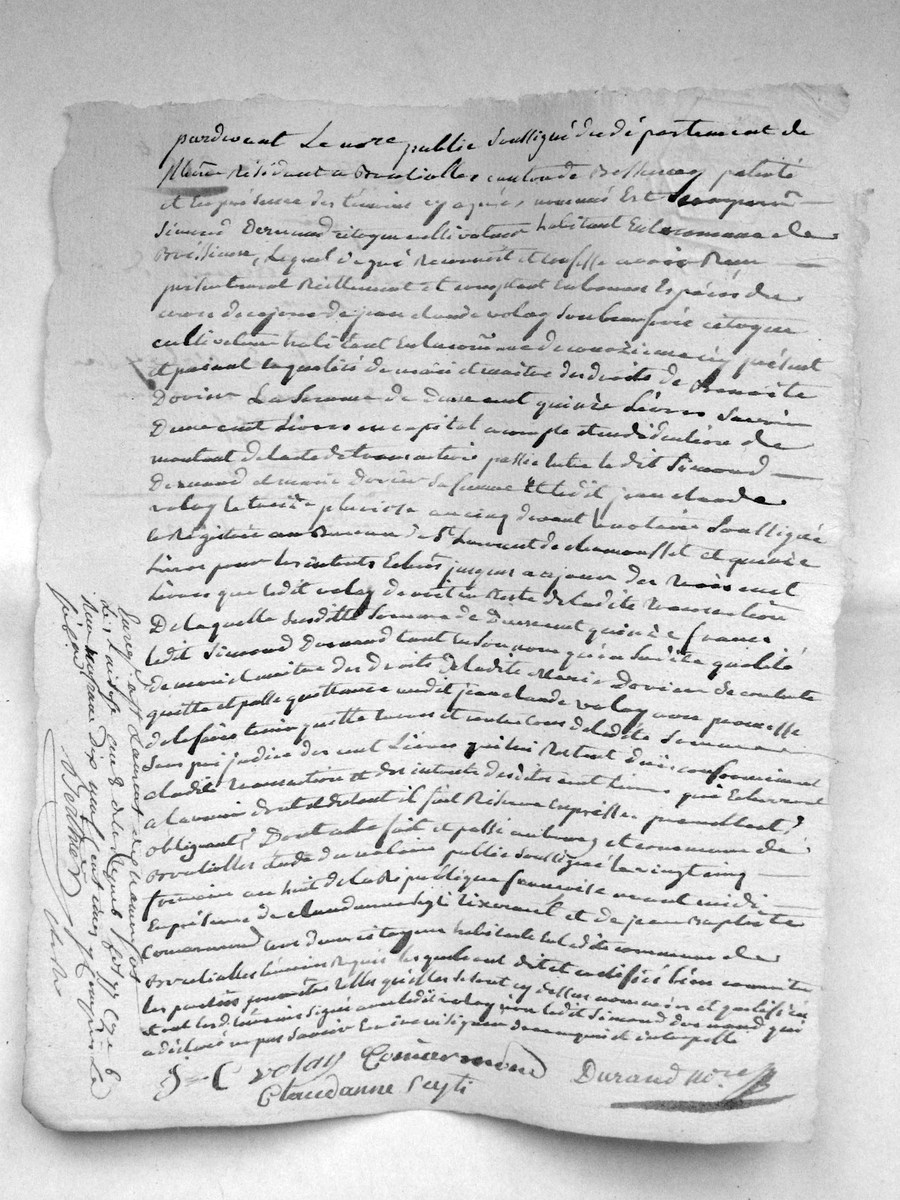 pardevant Le nore public Soussigné du département de
Rhône Résidant a Brullioles canton de Bessenay patenté
et En présence des témoins cy après nommés Est Comparu
Simond Dernand citoyen cultivateur habitant En la commune de
Brussieux, Lequel de gré Reconnoit et confesse avoir Reçu
présentement Réellement et comptant En bonnes Espèces de
cours de ce jour de jean claude volay Son beau frère citoyen
cultivateur habitant En la comune de cy présent
et païant En qualité de mari et maître des droits de Benoite
Dovier La Somme de Deux cent quinze Livres Savoir
Deux cent Livres en capital acompte et en déduction de
montant de l'acte de transaction passé Entre le dit Simond
Dernand et marie Dovier Sa femme Et ledit jean claude
volay le treize pluviose an cinq devant le notaire Soussigné
le Régistré au Bureau de St Laurent de chamousset et quinze
Livres pour les intérets Echus jusques a ce jour des trois cent
Livres que ledit volay devoit en Reste de ladite transaction
De laquelle susditte Somme de Deux cent quinze francs
ledit Simond Dernand tant En Son nom qu'en Sa dite qualité
de mari et maitre des droits de ladite Marie Dovier Se contente
quitte et passe quittance audit jean claude volay avec promesse
de le faire tenir quitte envers et contre tous de ladite Somme
Sans préjudice des cent Livres qui lui Restent dues conformément
a ladite transaction et des intérets desdites cent Livres qui Echerront
a l'avenir dont et du tout il fait Réserve Expresse, promettant,
obligeant, Dont acte fait et passé au bourg et commune de
Brullioles Etude du notaire public Soussigné le vingt cinq
frimaire an huit de la République françoise avant midi
En présence de claudanne Seyti et de jean Baptiste
Comarmond citoyens habitants En ladite commune de
Brullioles témoins Requis lesquels ont dit et certifié bien connoitre
les parties présentes telles qu'elles Sont cy dessus nommées et qualifiées
et ont les d. témoins Signé avec ledit volay non ledit Simond dernand qui
a déclaré ne pas Savoir Ecrire ni Signer de ce enquis et interpellé
J = C volay Comarmond Durand nore
Claudanne Seyti
Enregé a St Laurent de chamousset
Le frimaire an 8 de la Répub. fol 77 Case 6
Reçu un franc dix